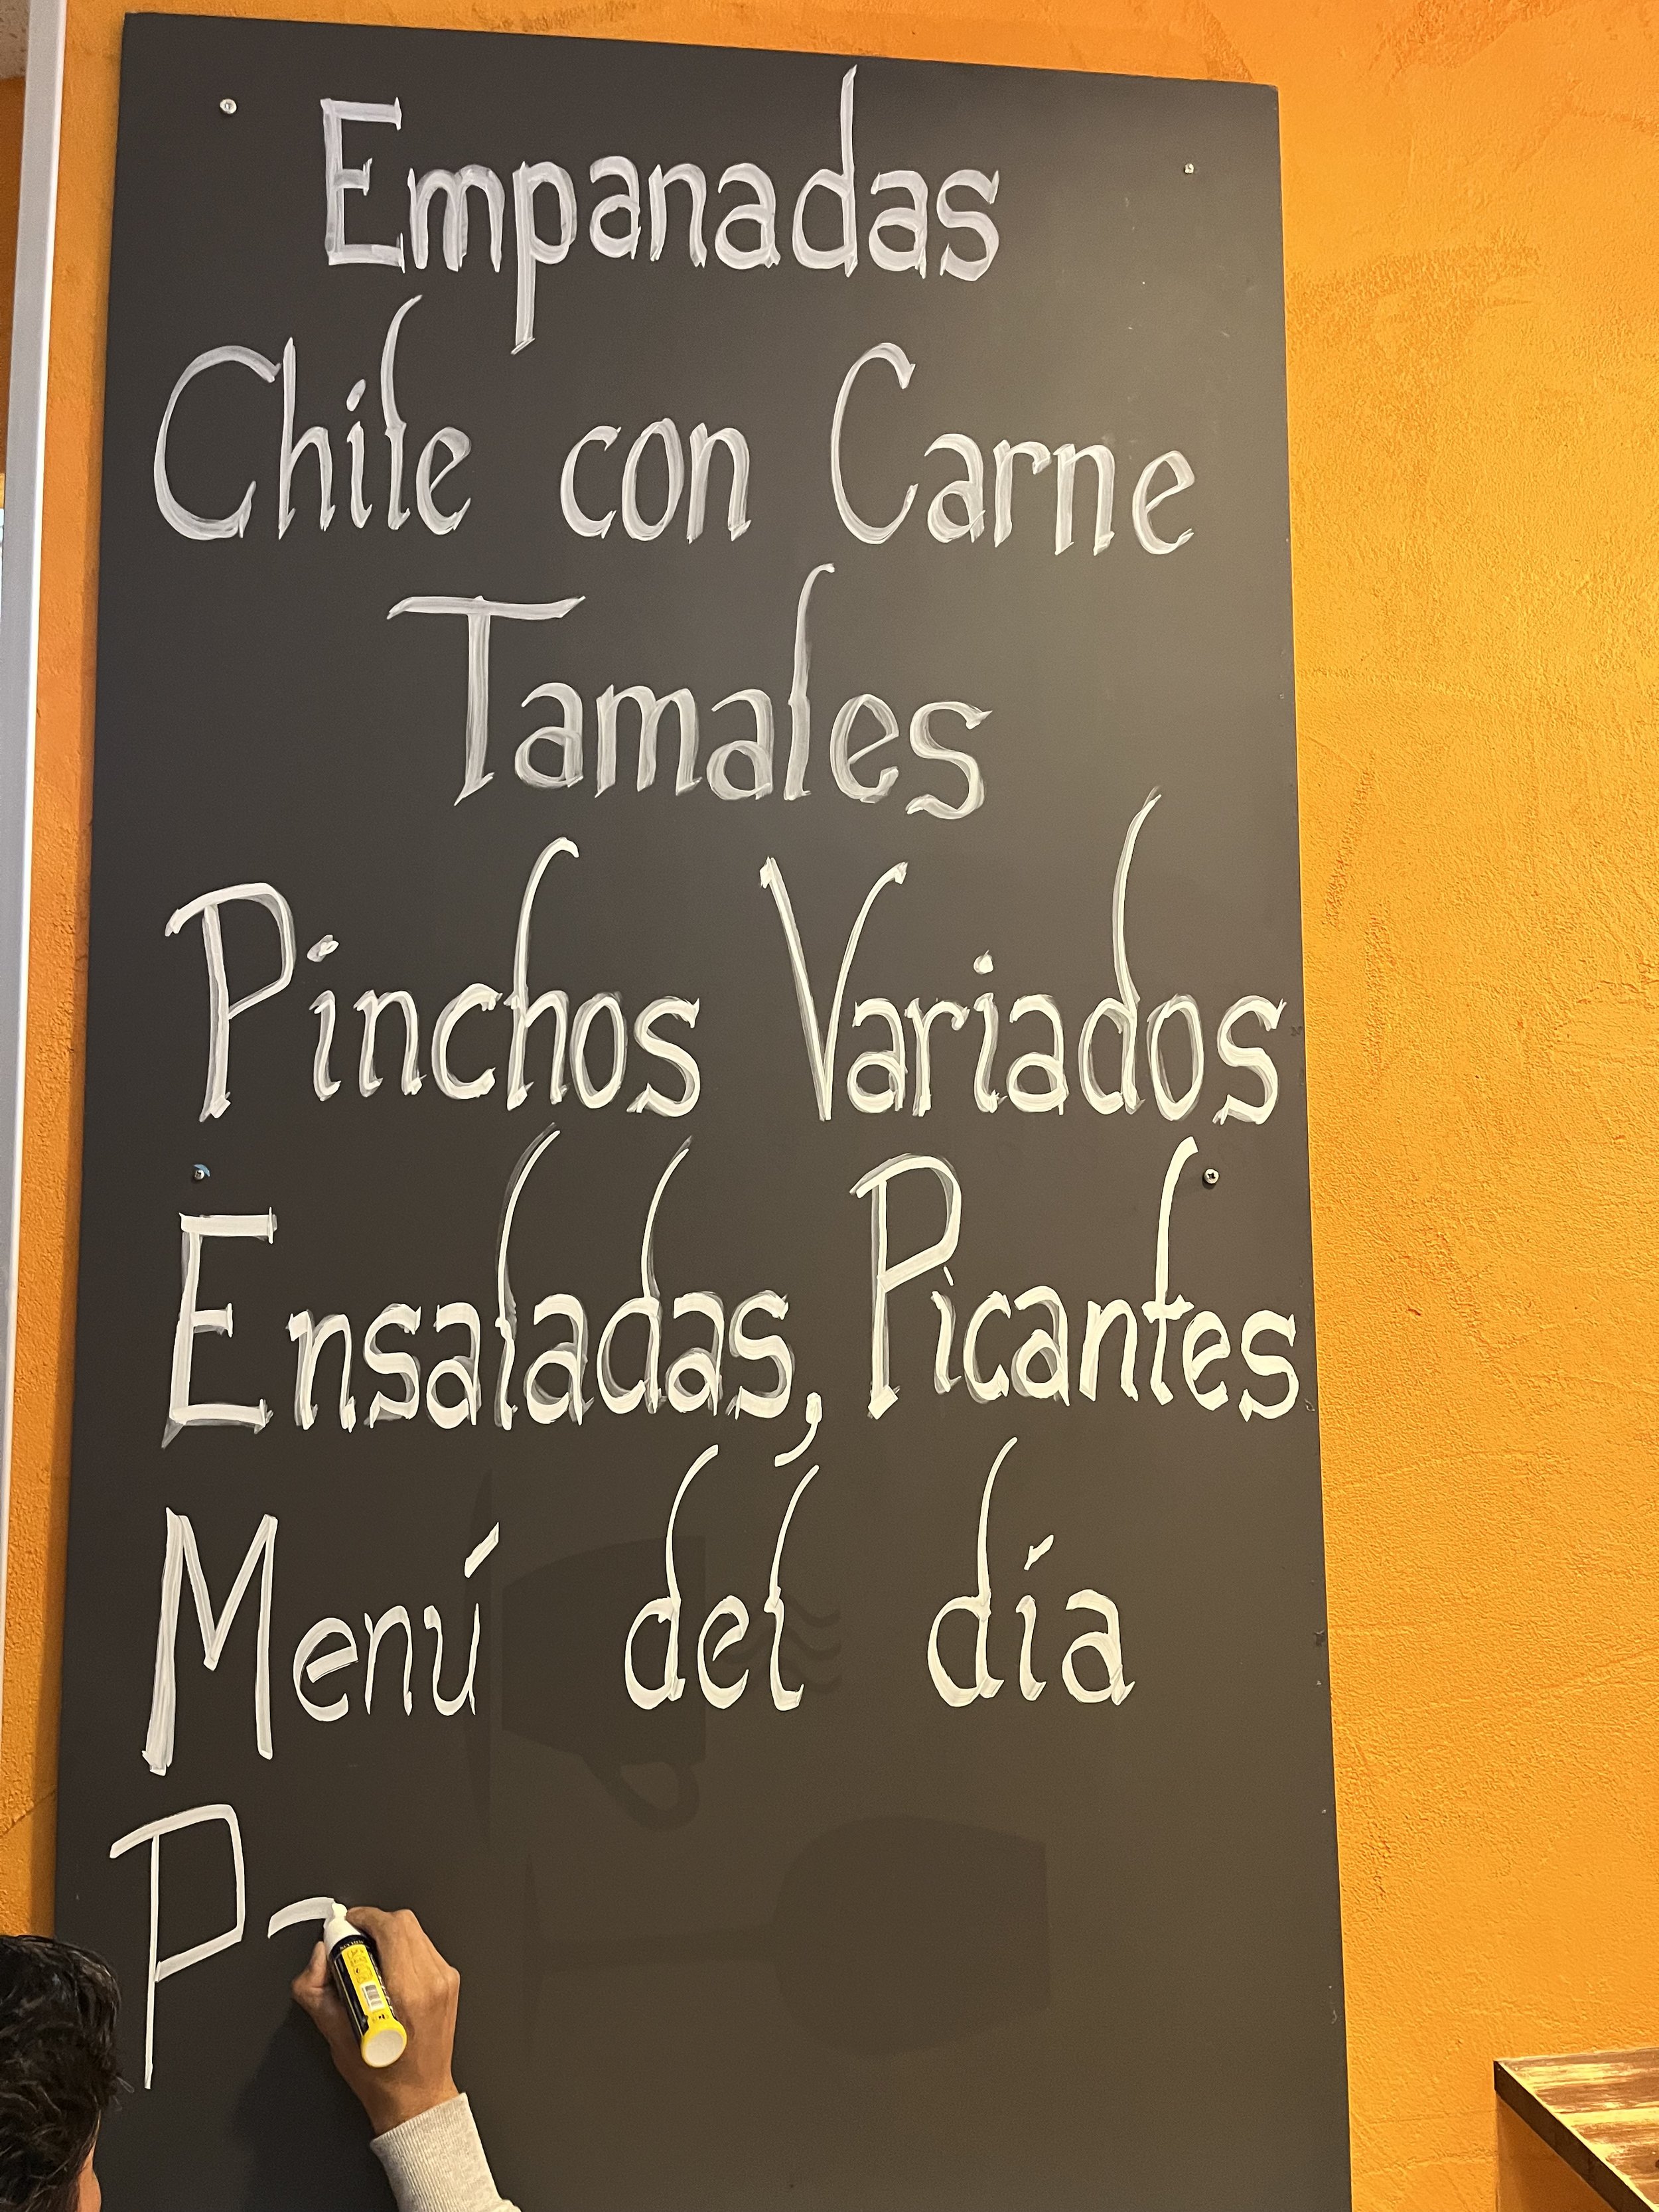 Empanadas
Chile con Carne
Tamales
Pinchos Variados
Ensaladas, Picantes
Menú del día
P